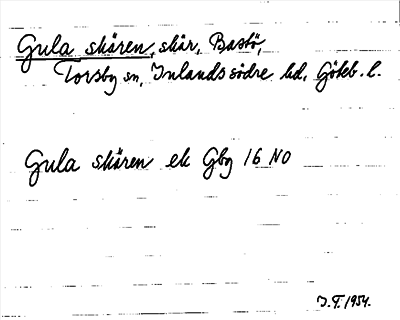 Gula skären, skär, Bastö,
Torsby sn, Inlands södre hd, Göteb. l.
Gula skären ek Gbg 16 NO
I.F. 1954.